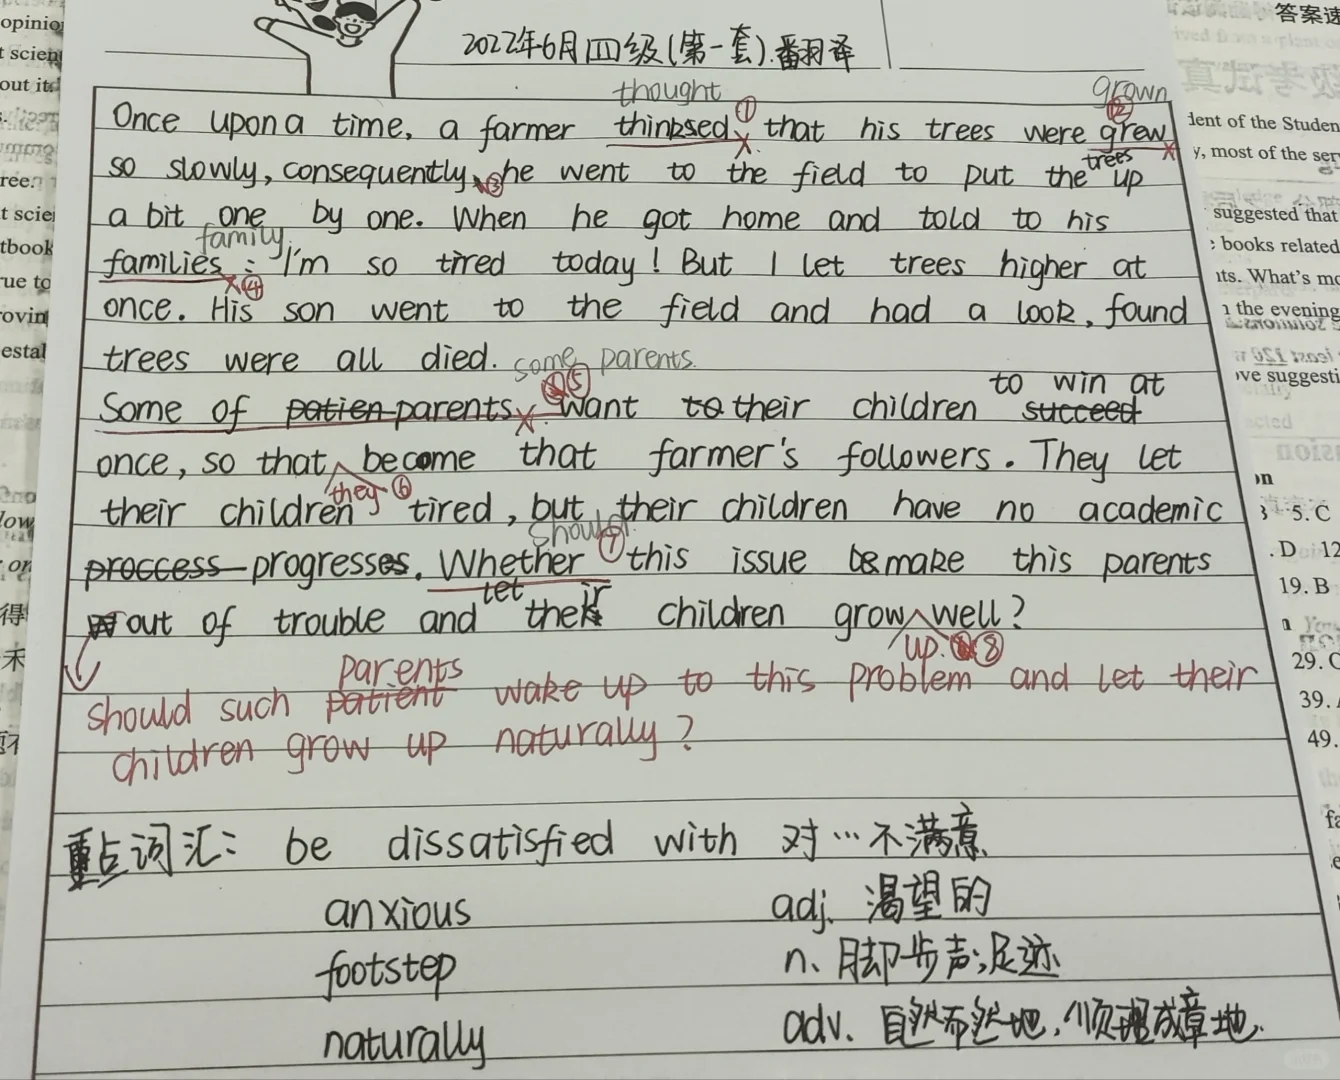 2022年6月四级(第一套).翻译
答案速
thought ① grown ②
Once upon a time, a farmer thinksed that his trees were grew
so slowly, consequently, ③ he went to the field to put the trees up
a bit one by one. When he got home and told to his
family
families : I'm so tired today! But I let trees higher at
④
once. His son went to the field and had a look, found
trees were all died. some parents.
⑤ to win at
Some of patien parents want to their children succeed
once, so that become that farmer's followers. They let
they ⑥
their children tired, but their children have no academic
should
proccess progresses. Whether ⑦ this issue be make this parents
let
out of trouble and their children grow well?
up. ⑧
parents
should such patient wake up to this problem and let their
children grow up naturally?
重点词汇: be dissatisfied with 对…不满意
anxious adj. 渴望的
footstep n. 脚步声;足迹
naturally adv. 自然而然地,顺理成章地.
opinio
t scien
out it
ree.
t scie
tbook
rue to
rovin
estal
low
or
得
未
dent of the Studen
y, most of the ser
suggested that
books related
nts. What's mo
n the evening
ve suggesti
on
5. C
. D 12
19. B
29. C
39.
49.